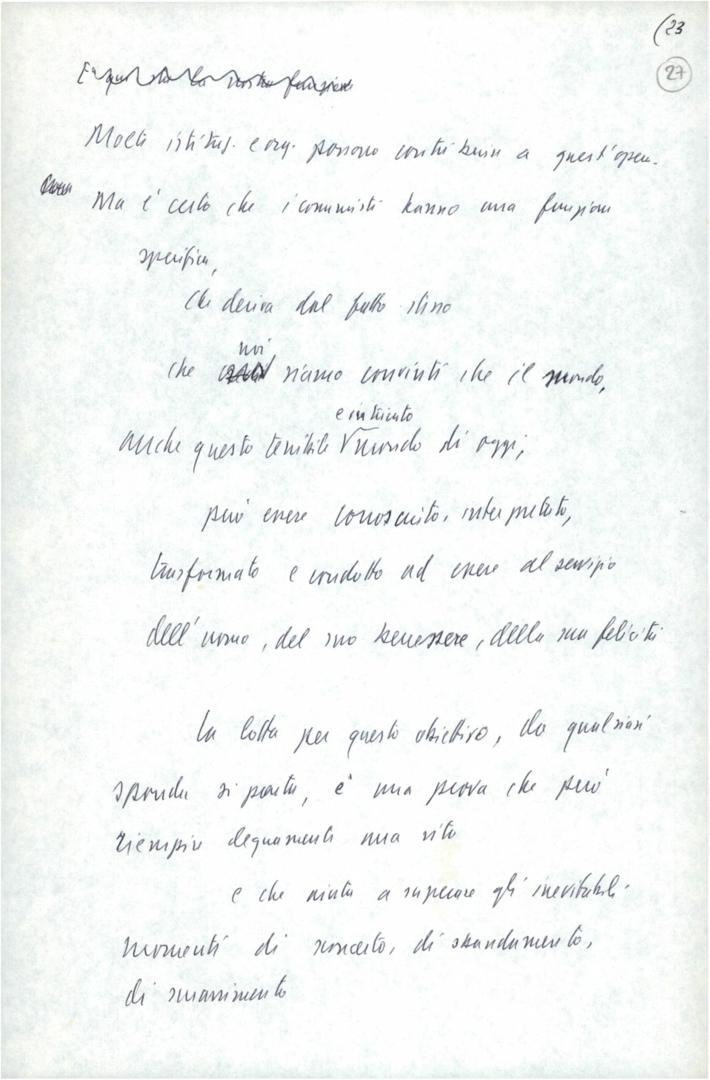 (23
27
E' questa la nostra funzione
Molte istituz. e org. possono contribuire a quest'opera.
Ma è certo che i comunisti hanno una funzione
specifica,
che deriva dal fatto stesso
noi
che siamo convinti che il mondo,
e intricato
anche questo terribile √mondo di oggi,
può essere conosciuto, interpretato,
trasformato e condotto ad essere al servizio
dell'uomo, del suo benessere, della sua felicità
La lotta per questo obiettivo, da qualsiasi
sponda si parta, è una prova che può
riempire degnamente una vita
e che aiuta a superare gli inevitabili
momenti di sconcerto, di sbandamento,
di smarrimento